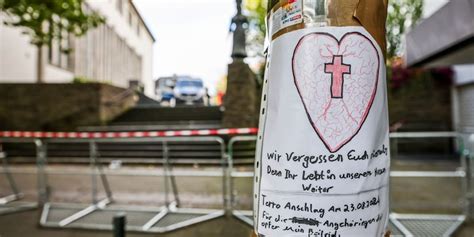 wir Vergessen Euch niemals
Denn Ihr Lebt in unserem Herzen
Weiter
Terro Anschlag am 23.08.2024
Für die Angehörigen der
opfer mein Beileid